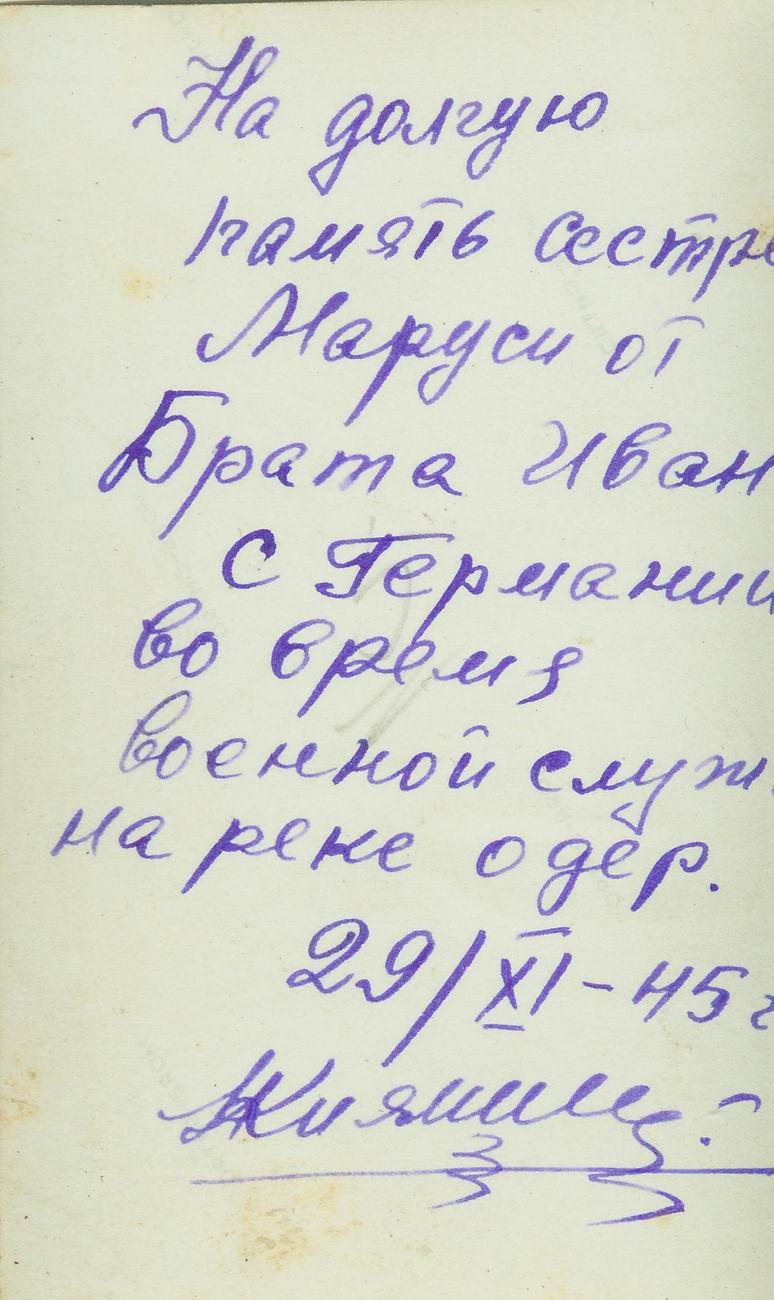 На долгую
память сестре
Маруси от
Брата Иван
С Германии
во время
военной служ
на реке одер.
29/XI-45г